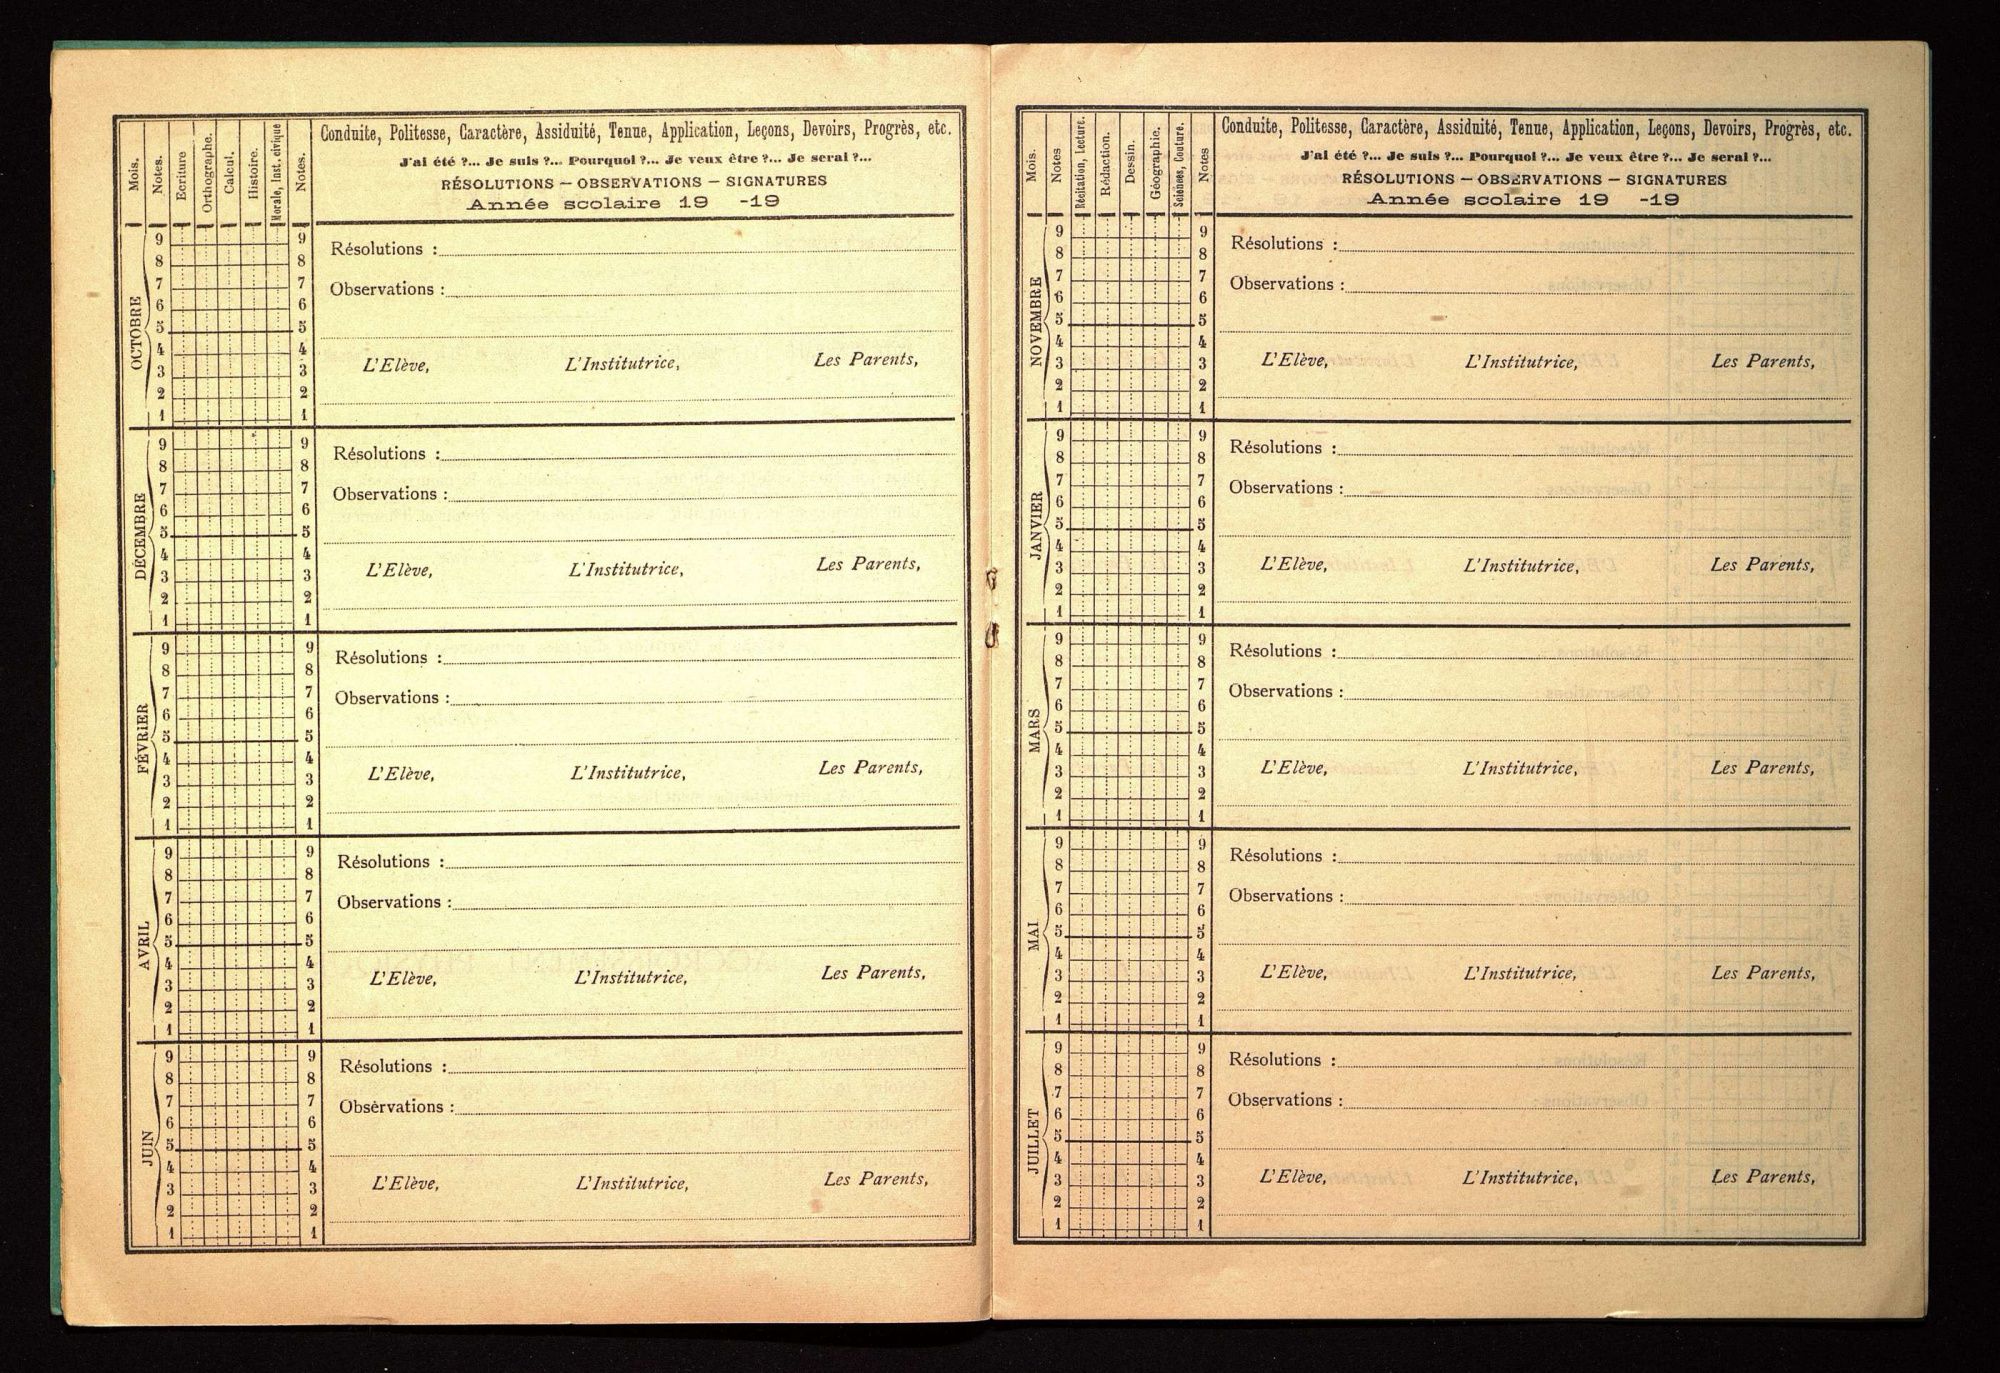 Mois.
Notes.
Ecriture
Orthographe.
Calcul.
Histoire.
Morale, Inst. civique
Notes.
Conduite, Politesse, Caractère, Assiduité, Tenue, Application, Leçons, Devoirs, Progrès, etc.
J'ai été ?... Je suis ?... Pourquoi ?... Je veux être ?... Je serai ?...
RÉSOLUTIONS — OBSERVATIONS — SIGNATURES
Année scolaire 19 -19
OCTOBRE
9 9
8 8
7 7
6 6
5 5
4 4
3 3
2 2
1 1
Résolutions :
Observations :
L'Elève, L'Institutrice, Les Parents,
DÉCEMBRE
9 9
8 8
7 7
6 6
5 5
4 4
3 3
2 2
1 1
Résolutions :
Observations :
L'Elève, L'Institutrice, Les Parents,
FÉVRIER
9 9
8 8
7 7
6 6
5 5
4 4
3 3
2 2
1 1
Résolutions :
Observations :
L'Elève, L'Institutrice, Les Parents,
AVRIL
9 9
8 8
7 7
6 6
5 5
4 4
3 3
2 2
1 1
Résolutions :
Observations :
L'Elève, L'Institutrice, Les Parents,
JUIN
9 9
8 8
7 7
6 6
5 5
4 4
3 3
2 2
1 1
Résolutions :
Observations :
L'Elève, L'Institutrice, Les Parents,
Mois.
Notes
Récitation, Lecture.
Rédaction.
Dessin.
Géographie.
Sciences, Couture.
Notes
Conduite, Politesse, Caractère, Assiduité, Tenue, Application, Leçons, Devoirs, Progrès, etc.
J'ai été ?... Je suis ?... Pourquoi ?... Je veux être ?... Je serai ?...
RÉSOLUTIONS — OBSERVATIONS — SIGNATURES
Année scolaire 19 -19
NOVEMBRE
9 9
8 8
7 7
6 6
5 5
4 4
3 3
2 2
1 1
Résolutions :
Observations :
L'Elève, L'Institutrice, Les Parents,
JANVIER
9 9
8 8
7 7
6 6
5 5
4 4
3 3
2 2
1 1
Résolutions :
Observations :
L'Elève, L'Institutrice, Les Parents,
MARS
9 9
8 8
7 7
6 6
5 5
4 4
3 3
2 2
1 1
Résolutions :
Observations :
L'Elève, L'Institutrice, Les Parents,
MAI
9 9
8 8
7 7
6 6
5 5
4 4
3 3
2 2
1 1
Résolutions :
Observations :
L'Elève, L'Institutrice, Les Parents,
JUILLET
9 9
8 8
7 7
6 6
5 5
4 4
3 3
2 2
1 1
Résolutions :
Observations :
L'Elève, L'Institutrice, Les Parents,